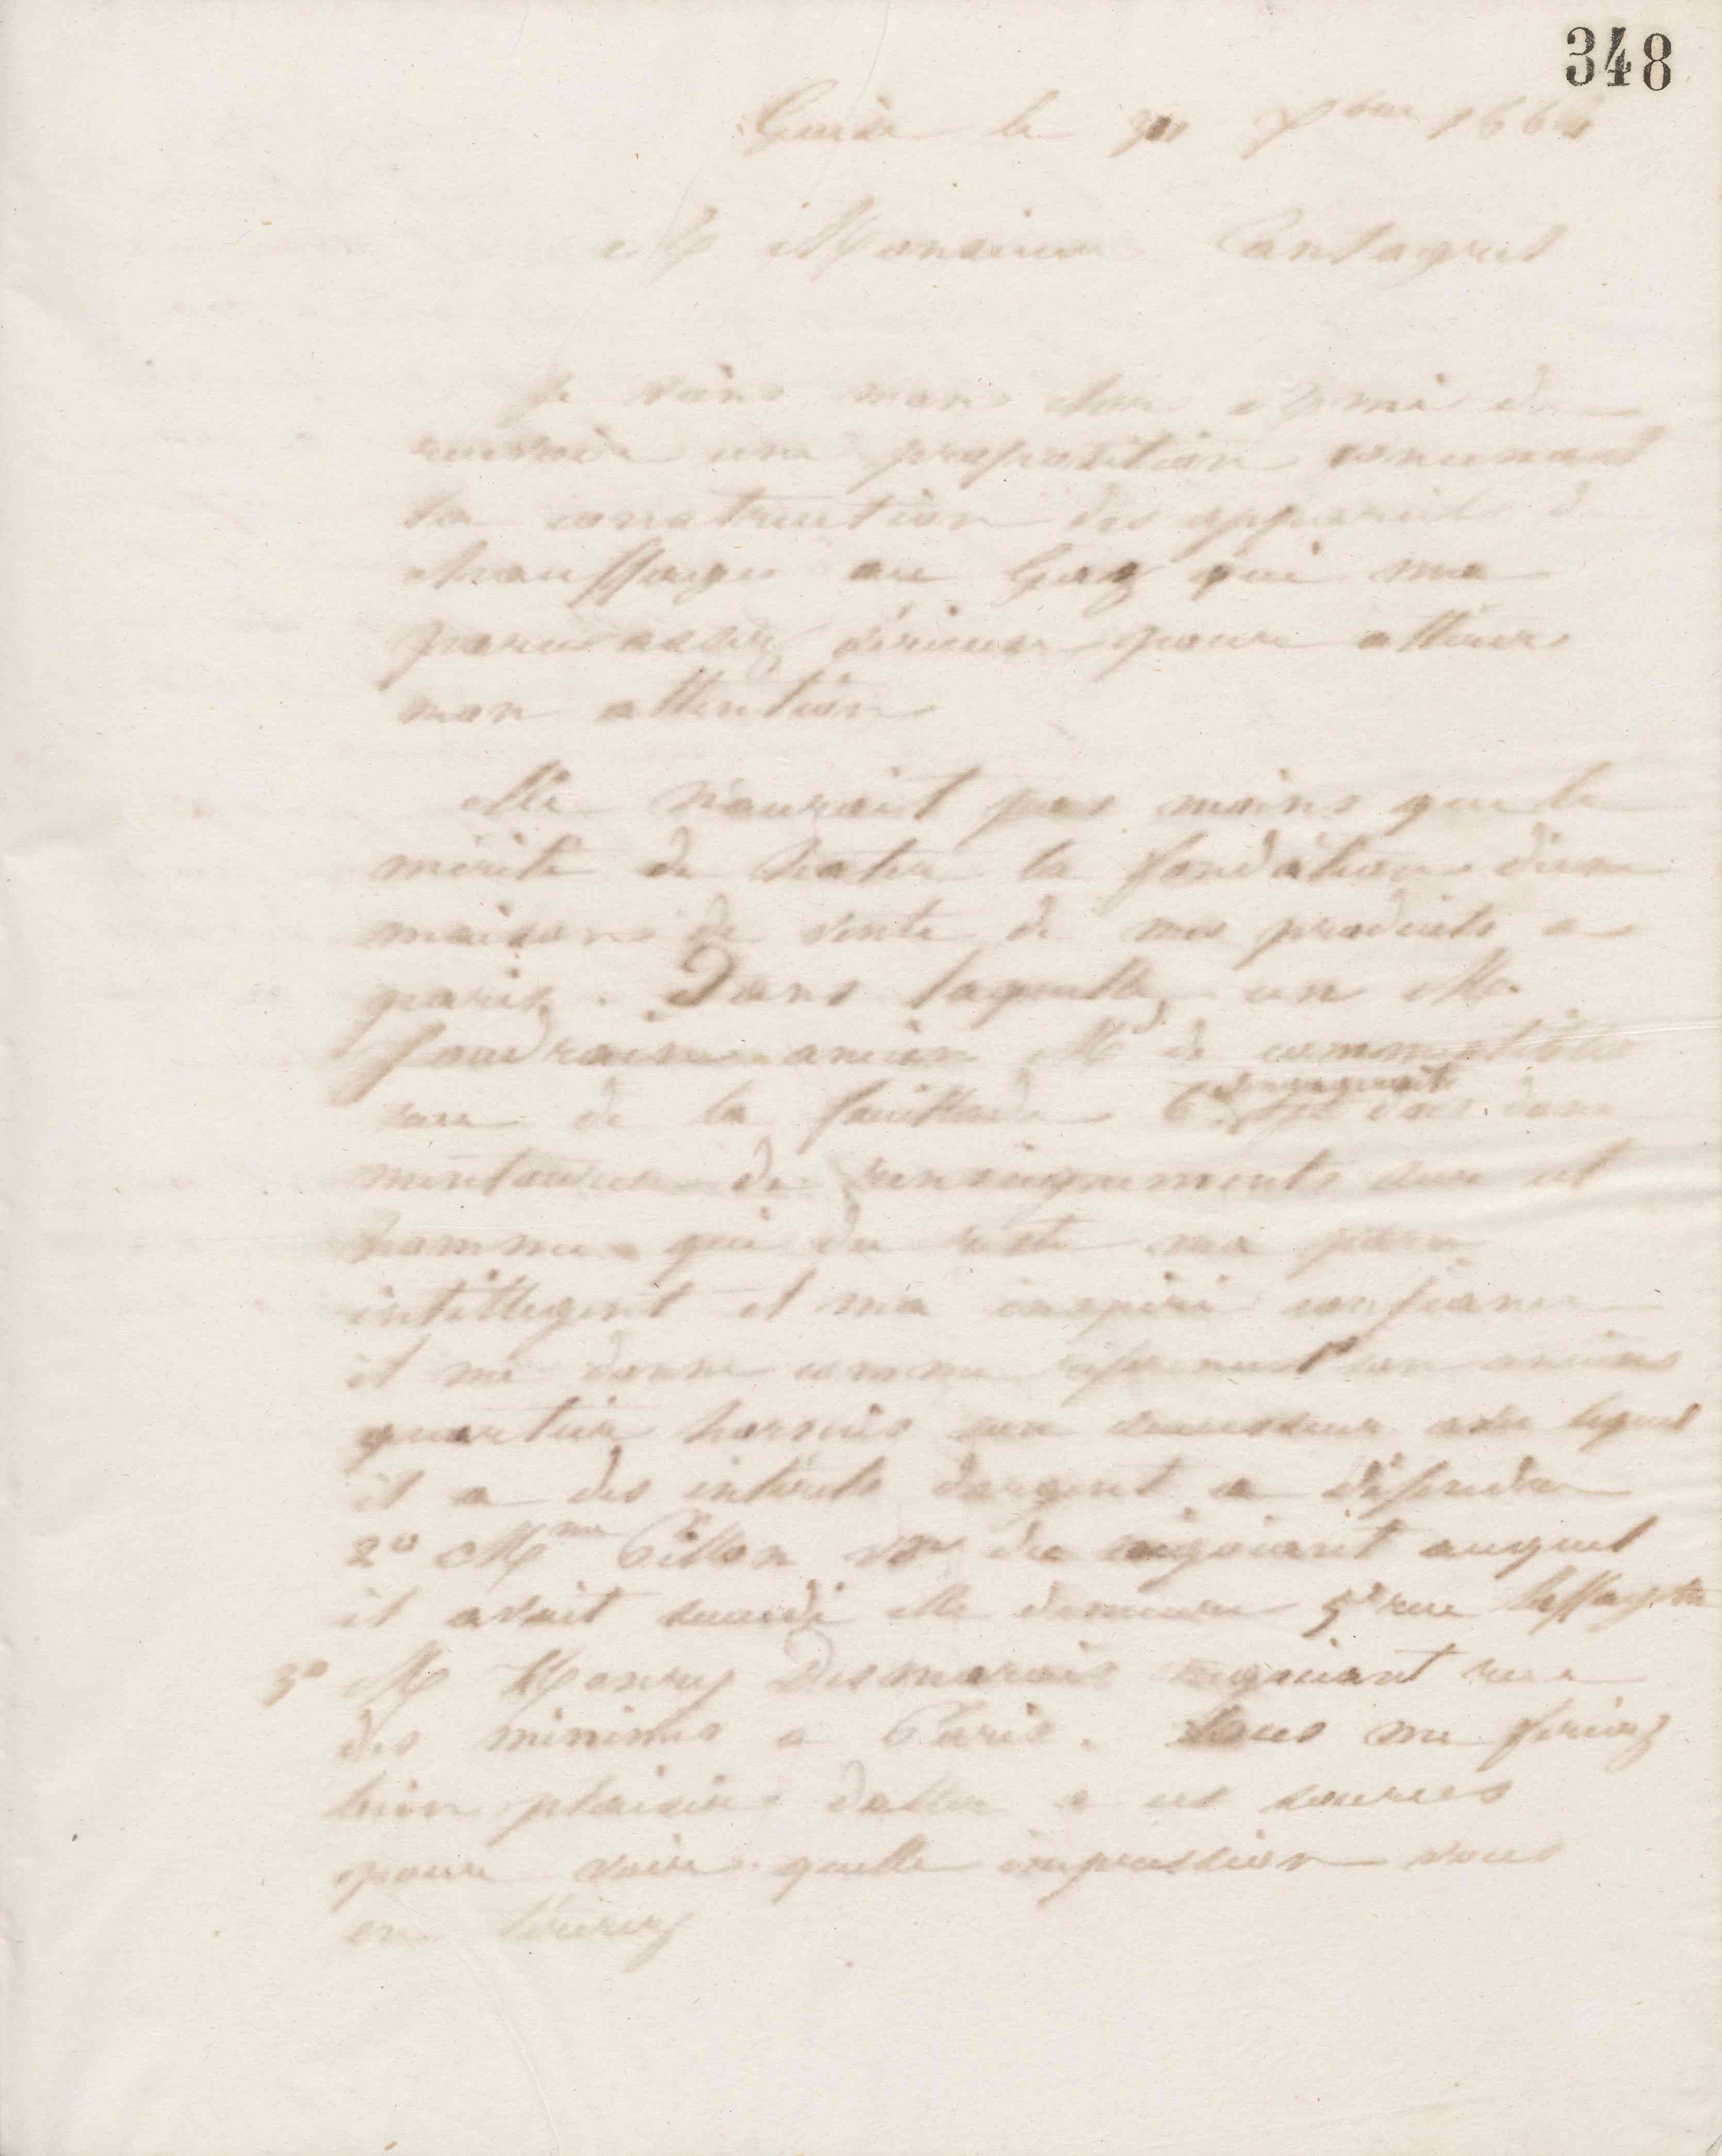 348
Guise le 1864
A Monsieur Cantagrel
Je viens mon cher Ami de
recevoir une proposition concernant
la construction des appareils de
chauffage au Gaz qui ma
paru assez sérieuse pour attirer
mon attention
elle n'aurait pas moins que le
mérite de hater la fondation dune
maison de vente de mes produits a
paris. Dans laquelle un Mr
ancien Md de comestibles
rue de la feuillade 6 s'engagerait
de renseignements sur cet
homme qui du reste ma paru
intellegent et ma inspiré confiance
il me donne comme son ancien
quartier son successeur avec lequel
il a des intérêts dargent a défendre
2° Mme Pillon vve du négociant auquel
il avait succédé elle demeure rue Laffayette
3° Mr Henry Desmarais négociant rue
des minimes a Paris. Vous me feriez
bien plaisir daller a ces sources
pour voir quelle impression vous
en tirerez